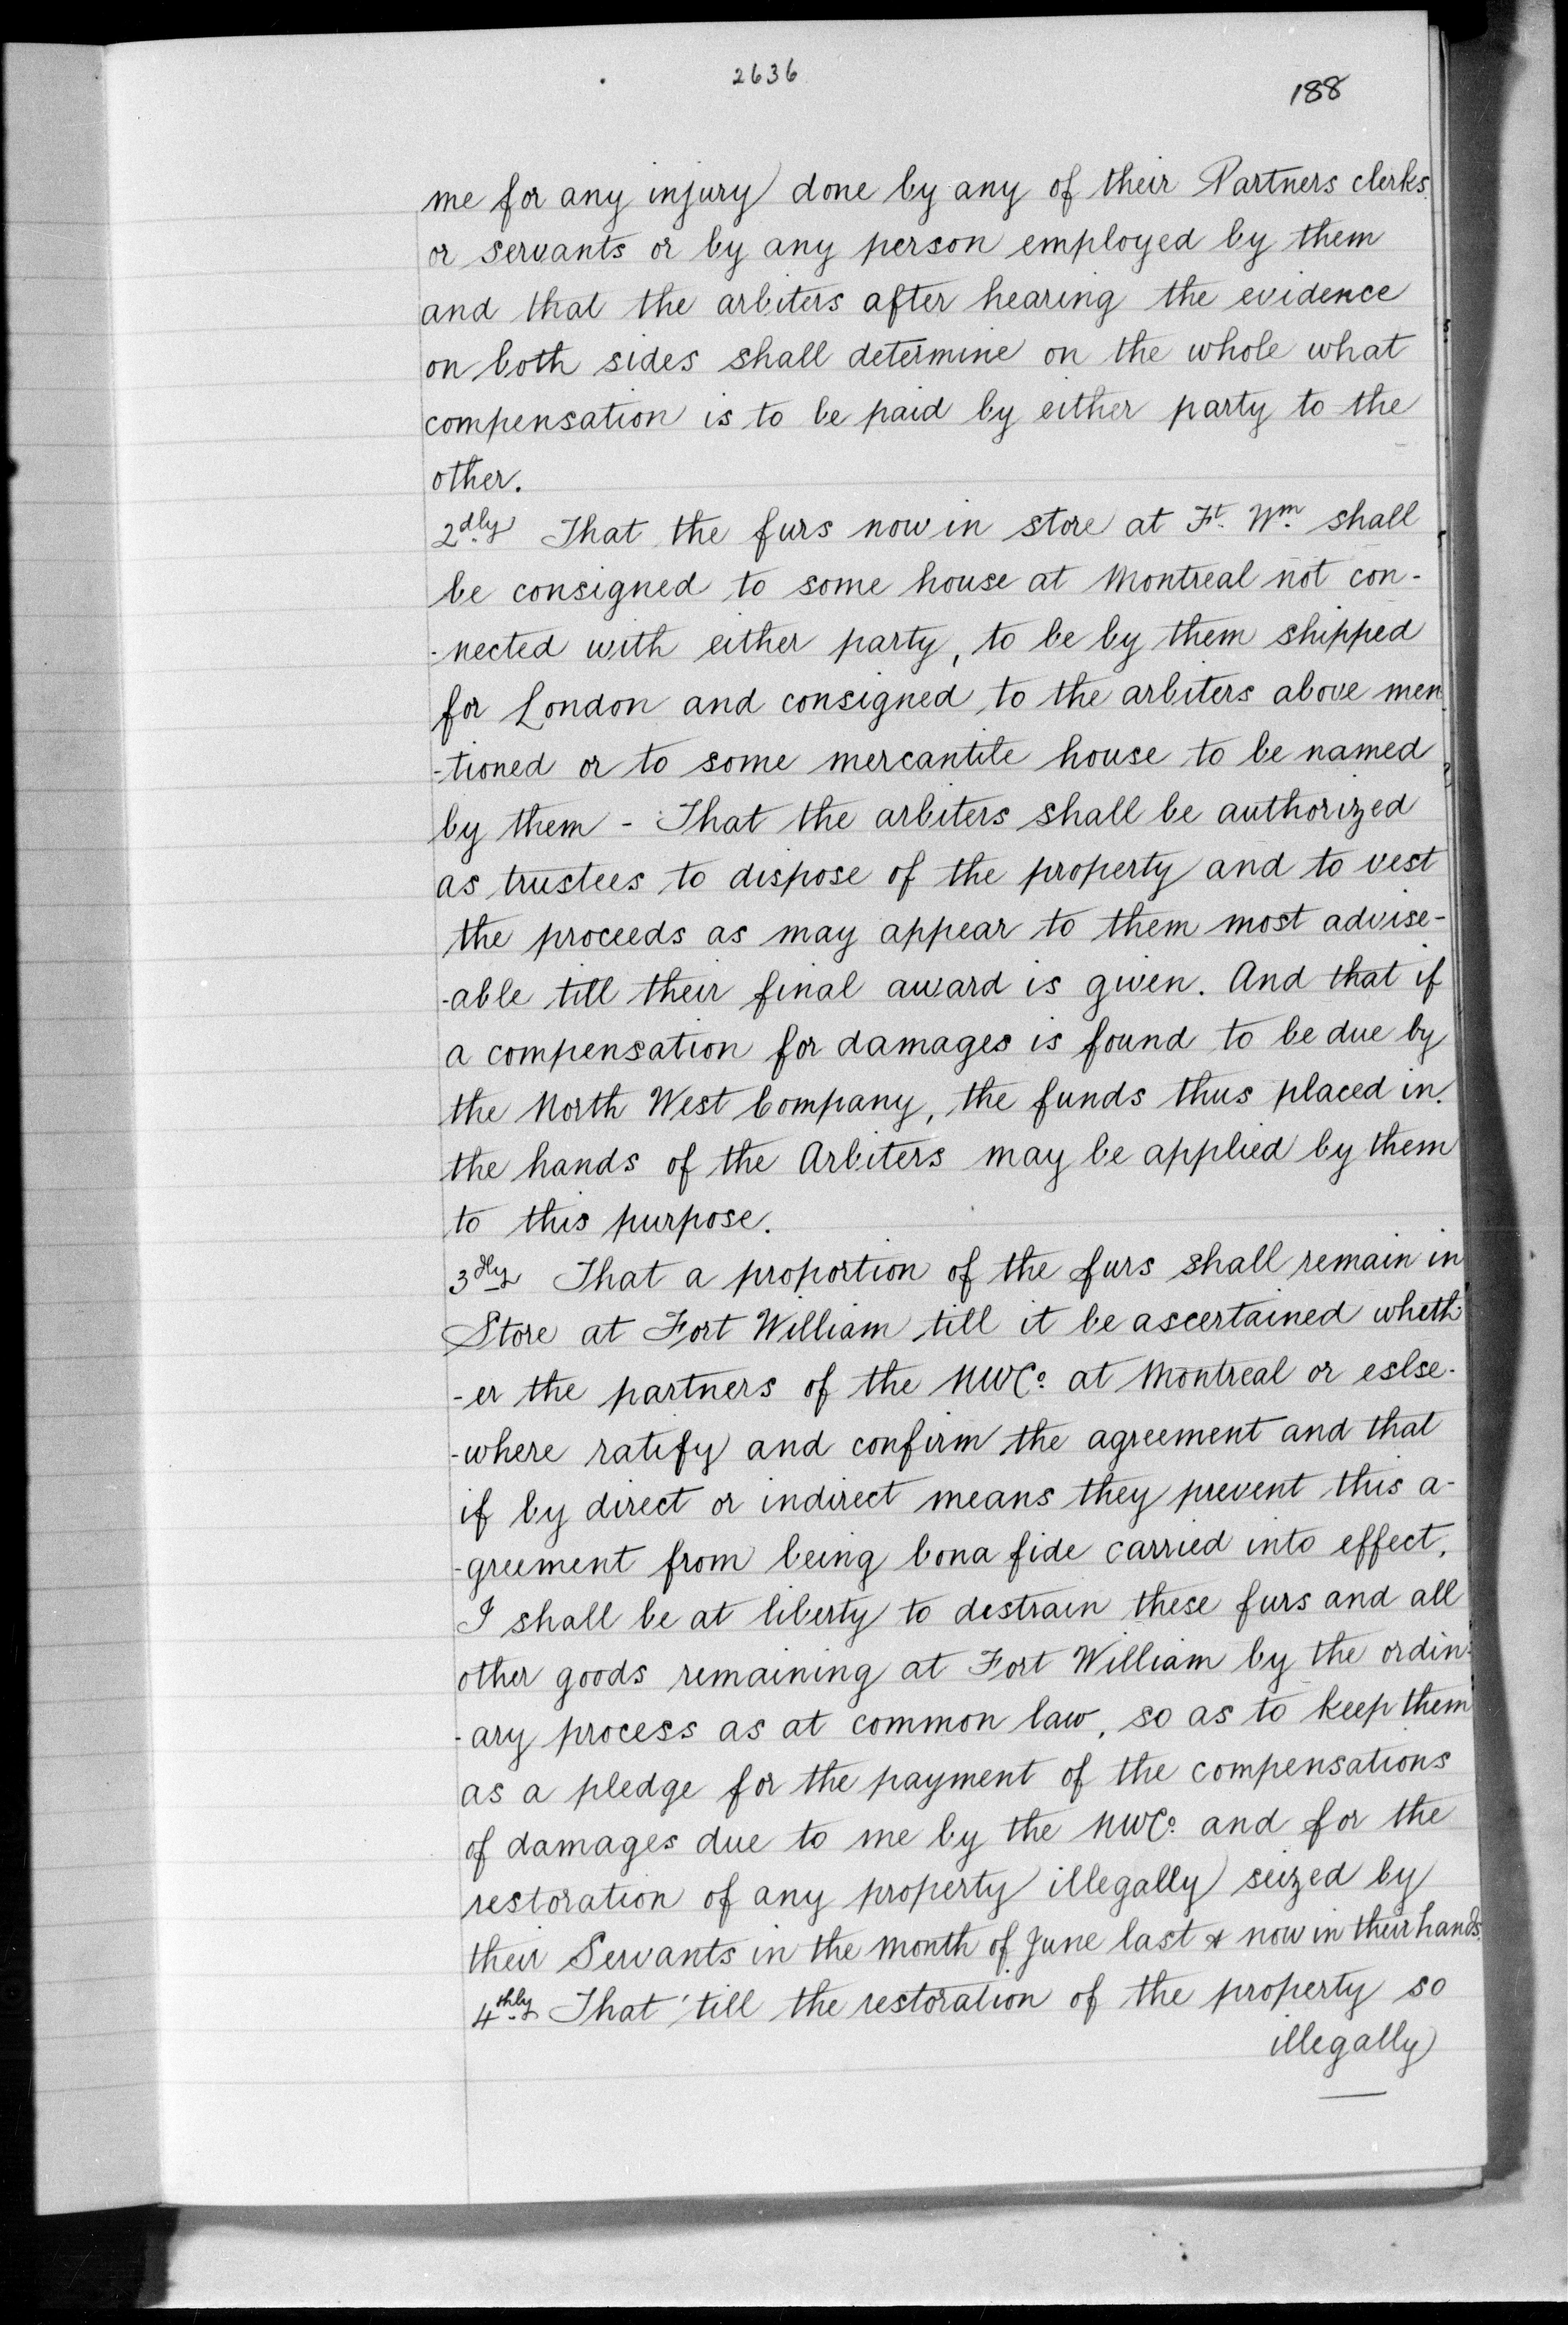 2636
188
me for any injury done by any of their Partners clerks
or servants or by any person employed by them
and that the arbiters after hearing the evidence
on both sides shall determine on the whole what
compensation is to be paid by either party to the
other.
2dly That the furs now in store at Ft. Wm. shall
be consigned to some house at Montreal not con-
-nected with either party, to be by them shipped
for London and consigned to the arbiters above men
-tioned or to some mercantile house to be named
by them - That the arbiters shall be authorized
as trustees to dispose of the property and to vest
the proceeds as may appear to them most advise-
-able till their final award is given. And that if
a compensation for damages is found to be due by
the North West Company, the funds thus placed in
the hands of the Arbiters may be applied by them
to this purpose.
3dly That a proportion of the furs shall remain in
Store at Fort William till it be ascertained wheth-
-er the partners of the NWCo. at Montreal or eslse-
-where ratify and confirm the agreement and that
if by direct or indirect means they prevent this a-
-greement from being bona fide carried into effect,
I shall be at liberty to distrain these furs and all
other goods remaining at Fort William by the ordin-
-ary process as at common law, so as to keep them
as a pledge for the payment of the compensations
of damages due to me by the NWCo. and for the
restoration of any property illegally seized by
their Servants in the month of June last & now in their hands.
4thly That 'till the restoration of the property so
illegally